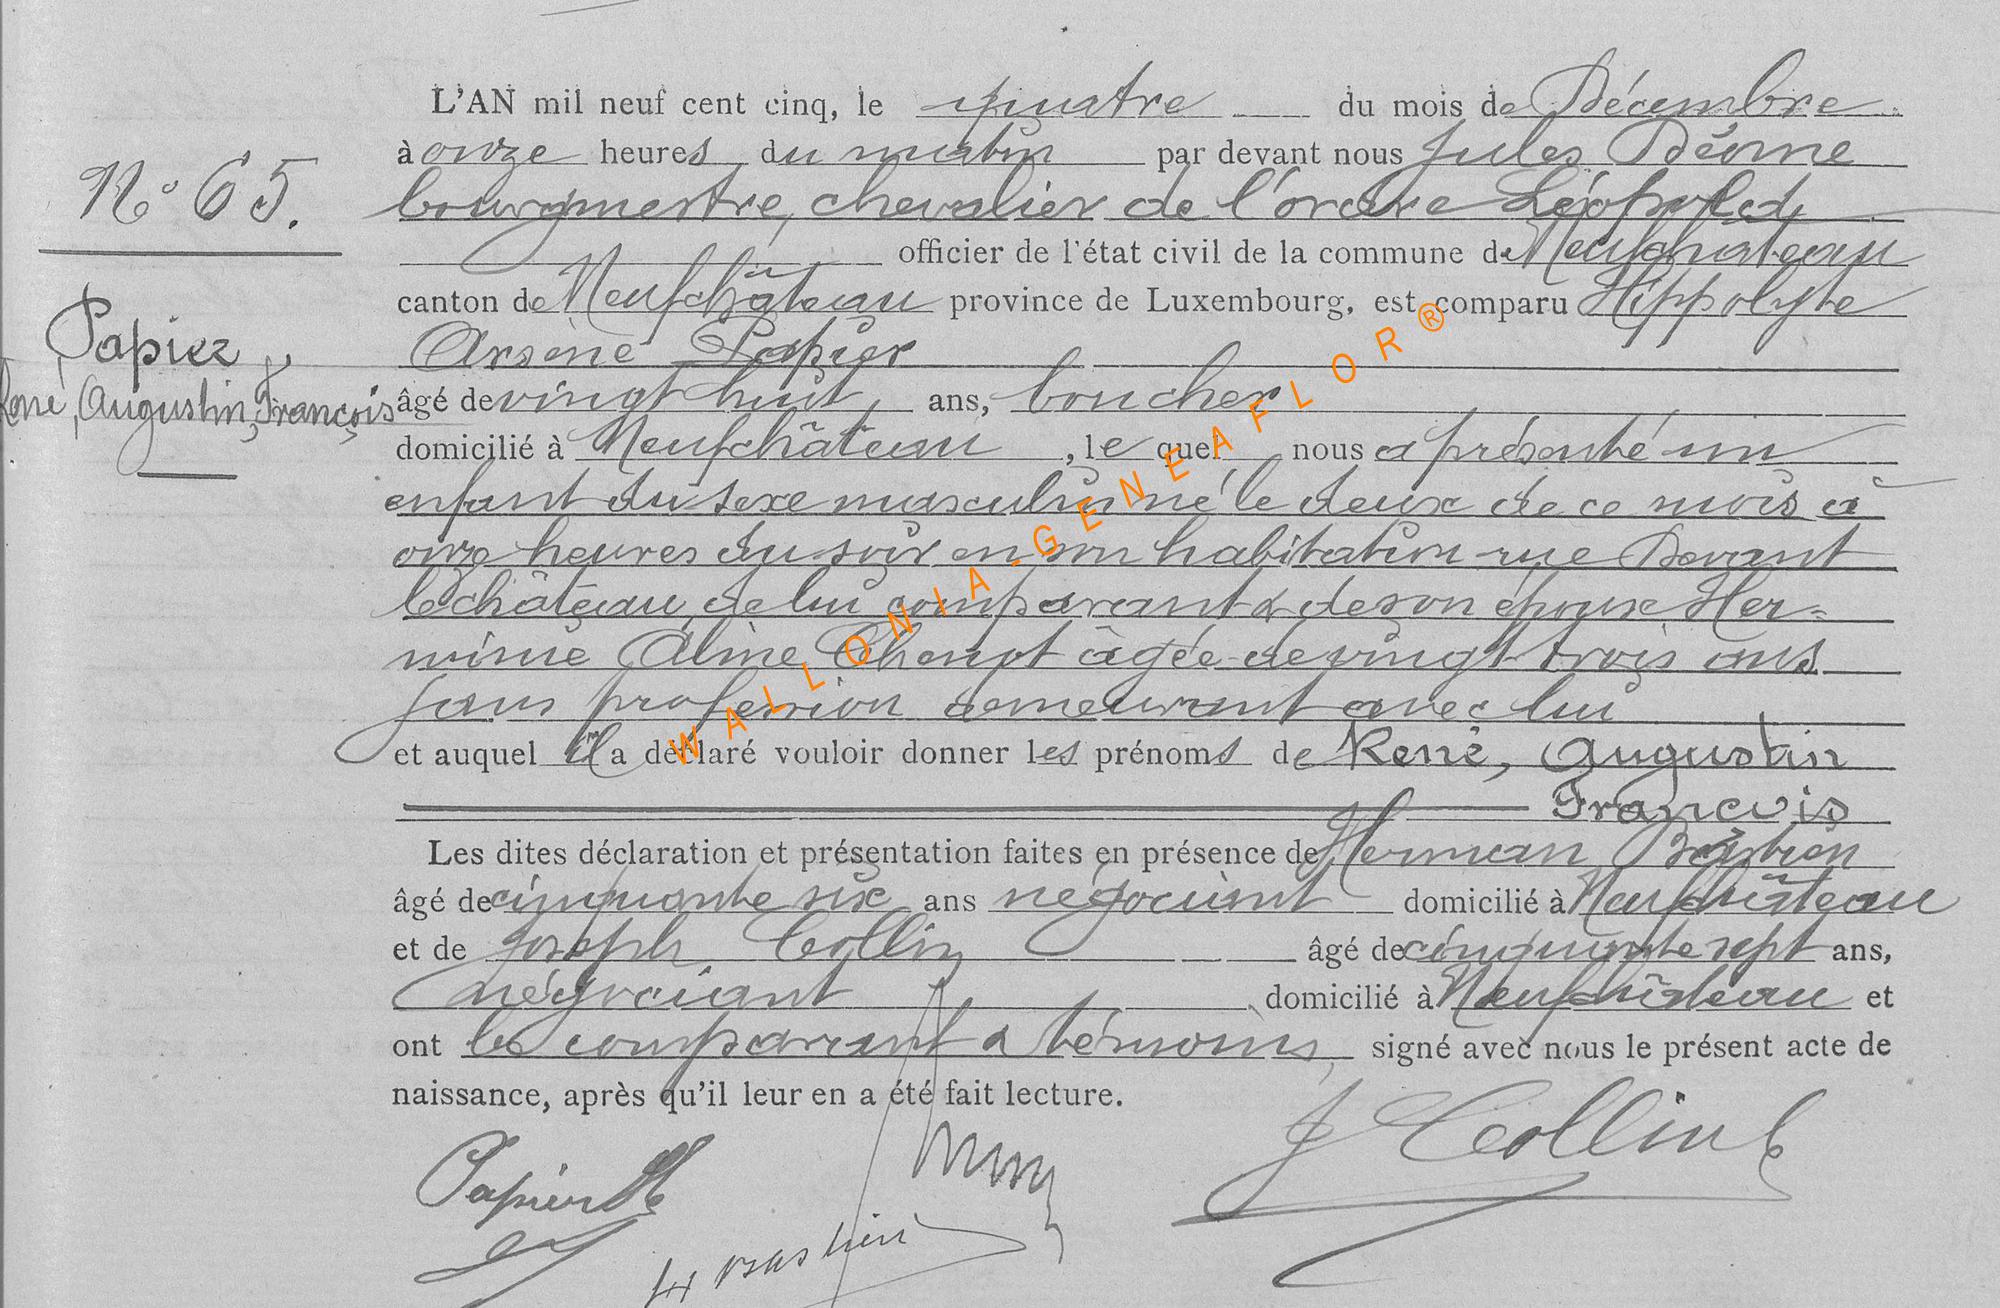 L'AN mil neuf cent cinq, le quatre du mois de Décembre
à onze heures du matin par devant nous Jules
N° 65.
bourgmestre, chevalier de l'ordre Léopold,
officier de l'état civil de la commune de Neufchâteau
canton de Neufchâteau province de Luxembourg, est comparu Hippolyte
Papier
Arsène Papier
René, Augustin, François
âgé de vingt huit ans, boucher
domicilié à Neufchâteau, le quel nous a présenté un
enfant du sexe masculin né le deux de ce mois à
onze heures du soir en son habitation rue Devant
le château, de lui comparant & de son épouse Her-
minie Aline âgée de vingt trois ans
sans profession demeurant avec lui
et auquel il a déclaré vouloir donner les prénoms de René, Augustin
François
Les dites déclaration et présentation faites en présence de Herman Bastien
âgé de cinquante six ans négociant domicilié à Neufchâteau
et de Joseph Collin âgé de cinquante sept ans,
négociant domicilié à Neufchâteau et
ont le comparant & témoins, signé avec nous le présent acte de
naissance, après qu'il leur en a été fait lecture.
Papier H
J Collin
H Bastien
WALLONIA-GENEAFLOR®